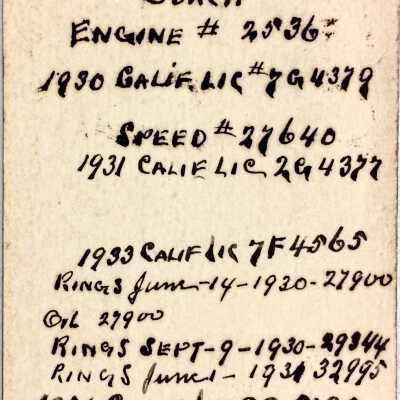 ENGINE # 2536
1930 CALIF LIC # 7G4379
SPEED # 27640
1931 CALIF LIC 2G4377
1933 CALIF LIC 7F4565
RINGS June-14-1930-27900
OIL 27900
RINGS SEPT-9-1930-29344
RINGS June 1-1931 32995